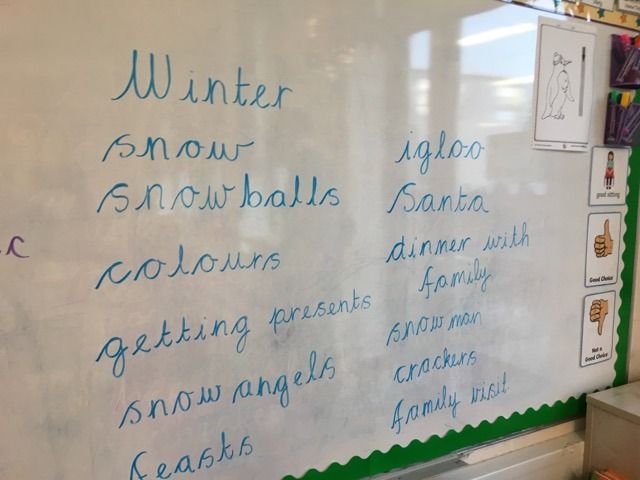 Winter
snow
snowballs
colours
getting presents
snow angels
feasts
igloo
Santa
dinner with
family
snowman
crackers
family visit
c
good sitting
Good Choice
Not a
Good Choice